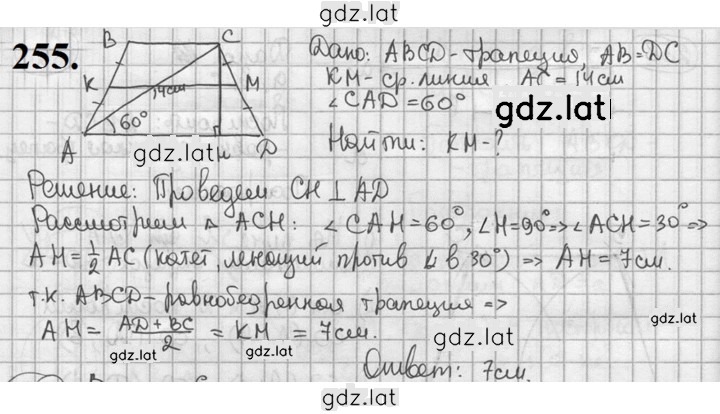 gdz.lat
255.
B C
K M
14см
60°
A H D
gdz.lat
Дано: ABCD-трапеция, AB=DC
KM-ср. линия AC=14см
∠CAD=60°
gdz.lat
Найти: KM-?
Решение: Проведем CH⊥AD
Рассмотрим △ ACH: ∠CAH=60°, ∠H=90°=>∠ACH=30°=>
AH=½AC (катет, лежащий против ∠ в 30°) => AH=7см.
т.к. ABCD-равнобедренная трапеция =>
AH = (AD+BC)/2 = KM = 7см.
gdz.lat gdz.lat gdz.lat gdz.lat
Ответ: 7см.
gdz.lat gdz.lat